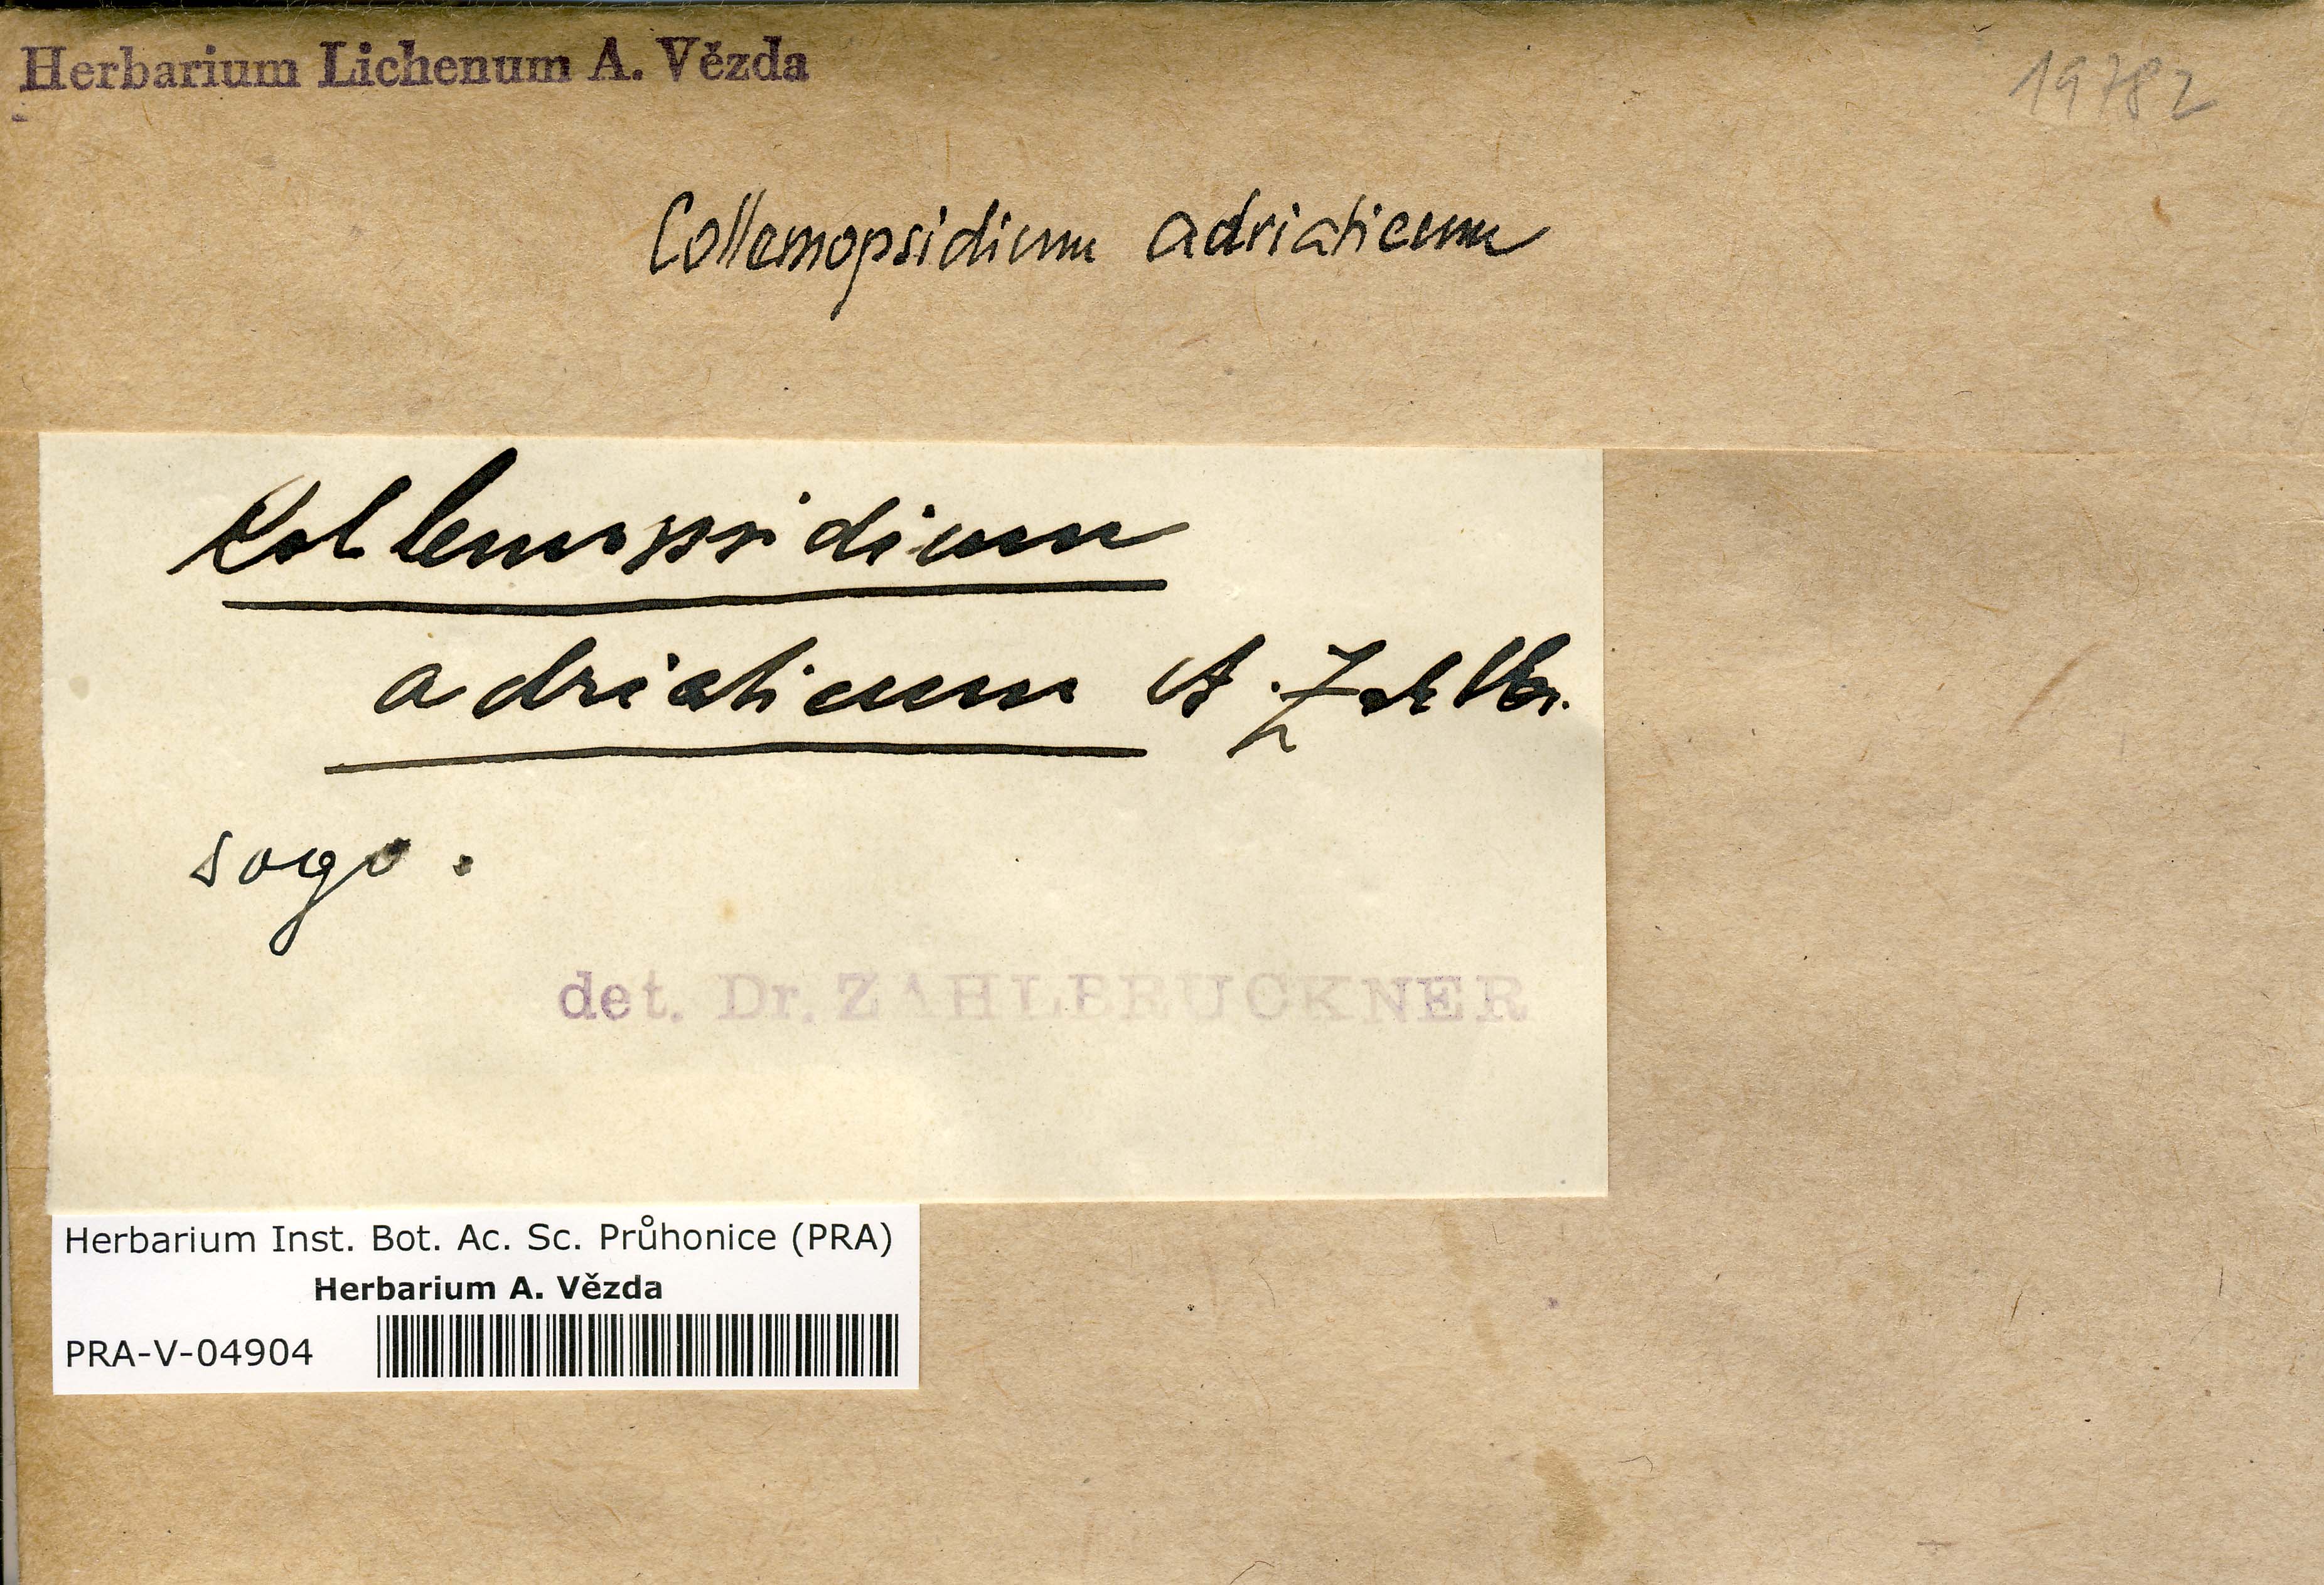 Herbarium Lichenum A. Vězda
19782
Collemopsidium adriaticum
Collemopsidium
adriaticum A. Zahlbr.
sogo.
det. Dr. ZAHLBRUCKNER
Herbarium Inst. Bot. Ac. Sc. Průhonice (PRA)
Herbarium A. Vězda
PRA-V-04904